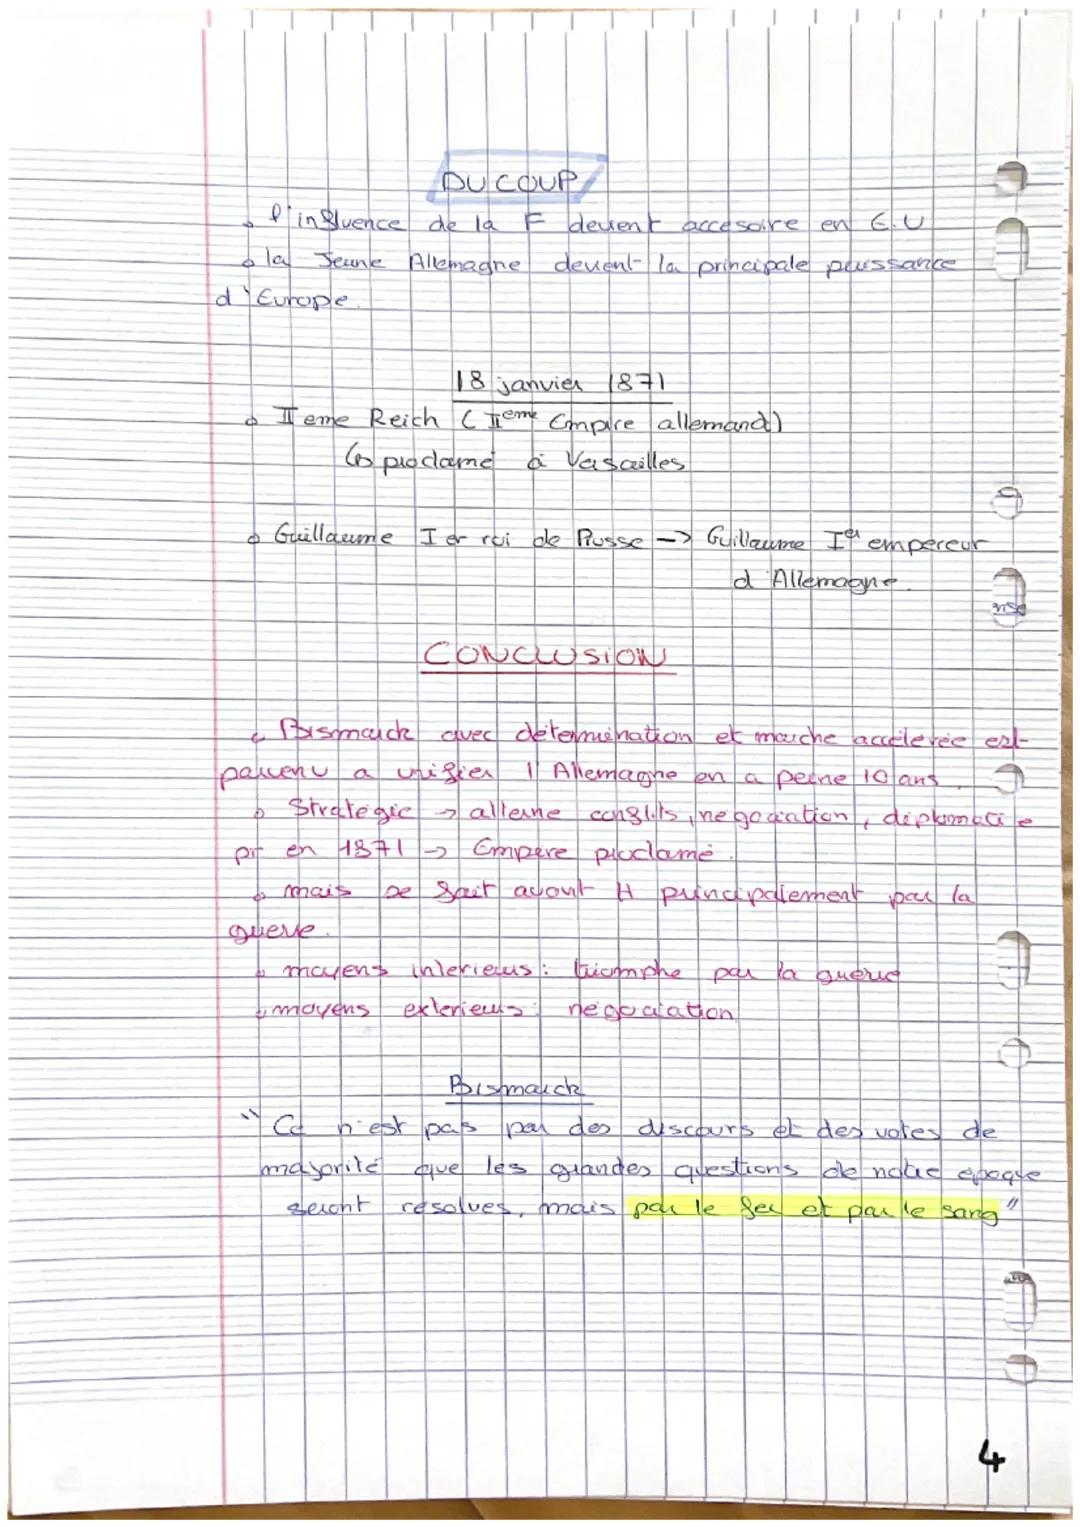 DU COUP
l'influence de la F devient accesoire en E.U
la Jeune Allemagne devient la principale puissance
d'Europe.
18 janvier 1871
II eme Reich (II eme Empire allemand)
↳ proclamé à Versailles
Guillaume I er roi de Prusse -> Guillaume Ier empereur
d'Allemagne.
CONCLUSION
Bismarck avec détermination et marche accélérée est
parvenu a unifier l'Allemagne en a peine 10 ans.
Stratégie -> alterne conflits, négociation, diplomatie
pr en 1871 -> Empire proclamé.
mais se fait avant tt principalement par la
guerre.
moyens interieurs : triomphe par la guerre
moyens exterieurs : négociation
Bismarck
"Ce n'est pas par des discours et des votes de
majorité que les grandes questions de notre époque
seront résolues, mais par le feu et par le sang"
4